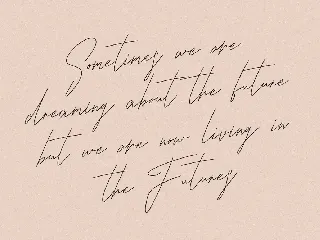 Sometimes we are
dreaming about the future
but we are now living in
the Future